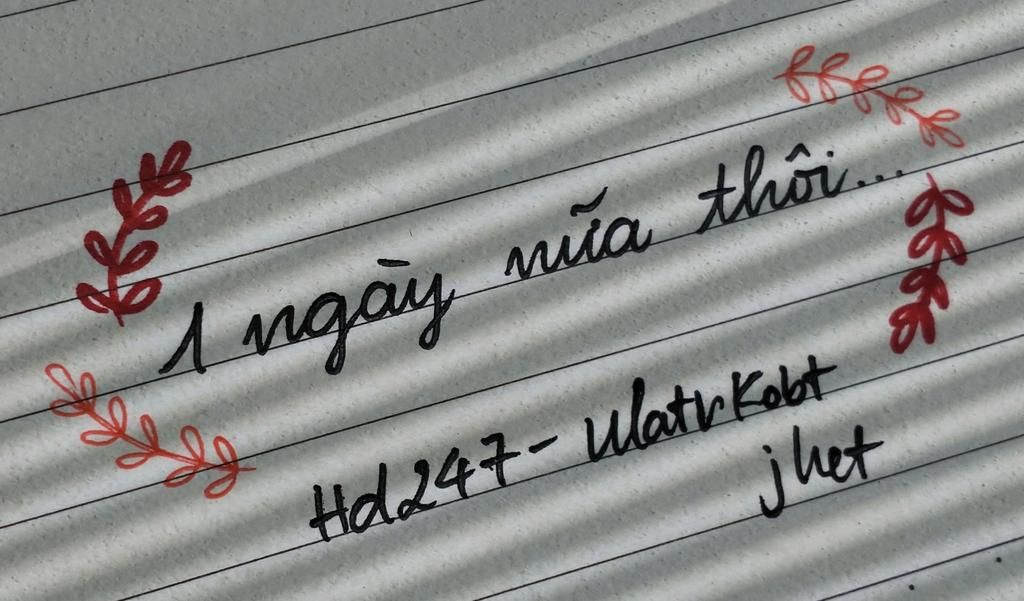 1 ngày nữa thôi...
Hd247-
jhet